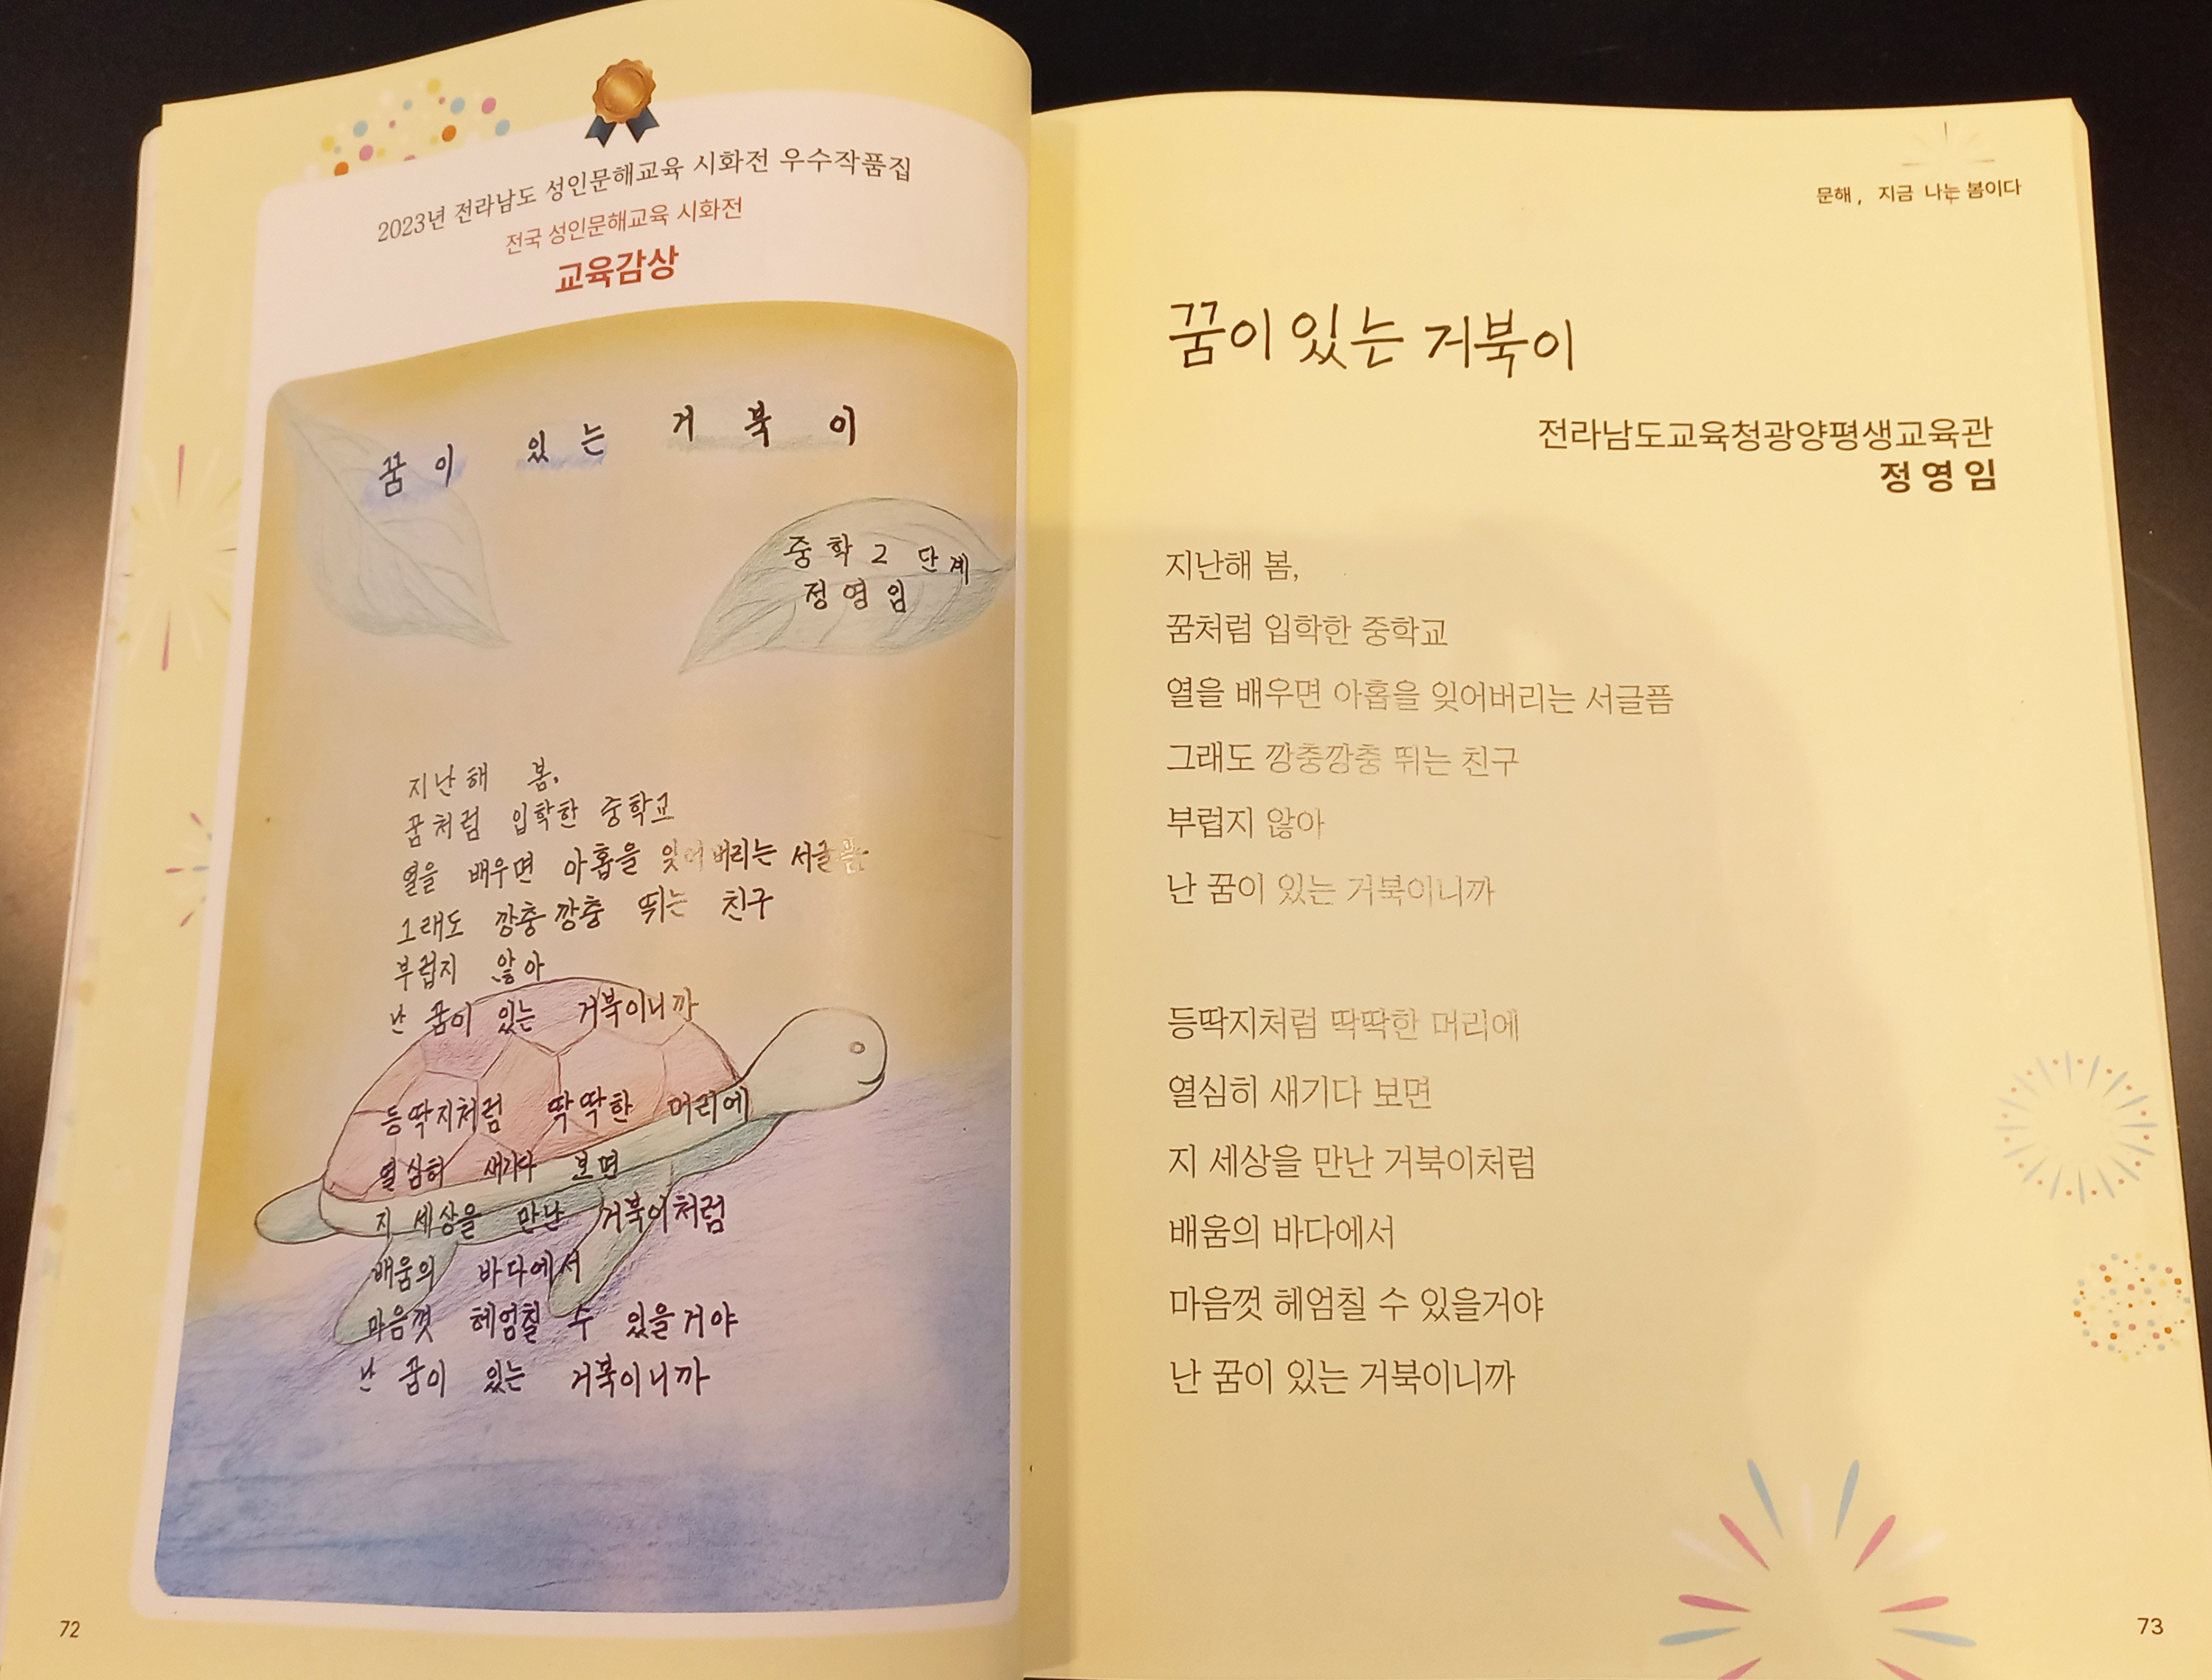 2023년 전라남도 성인문해교육 시화전 우수작품집
전국 성인문해교육 시화전
교육감상
꿈이 있는 거북이
중학2단계
정영임
지난해 봄,
꿈처럼 입학한 중학교
열을 배우면 아홉을 잊어버리는 서글픔
그래도 깡충깡충 뛰는 친구
부럽지 않아
난 꿈이 있는 거북이니까
등딱지처럼 딱딱한 머리에
열심히 새기다 보면
지 세상을 만난 거북이처럼
배움의 바다에서
마음껏 헤엄칠 수 있을거야
난 꿈이 있는 거북이니까
72
문해, 지금 나는 봄이다
꿈이 있는 거북이
전라남도교육청광양평생교육관
정영임
지난해 봄,
꿈처럼 입학한 중학교
열을 배우면 아홉을 잊어버리는 서글픔
그래도 깡충깡충 뛰는 친구
부럽지 않아
난 꿈이 있는 거북이니까
등딱지처럼 딱딱한 머리에
열심히 새기다 보면
지 세상을 만난 거북이처럼
배움의 바다에서
마음껏 헤엄칠 수 있을거야
난 꿈이 있는 거북이니까
73